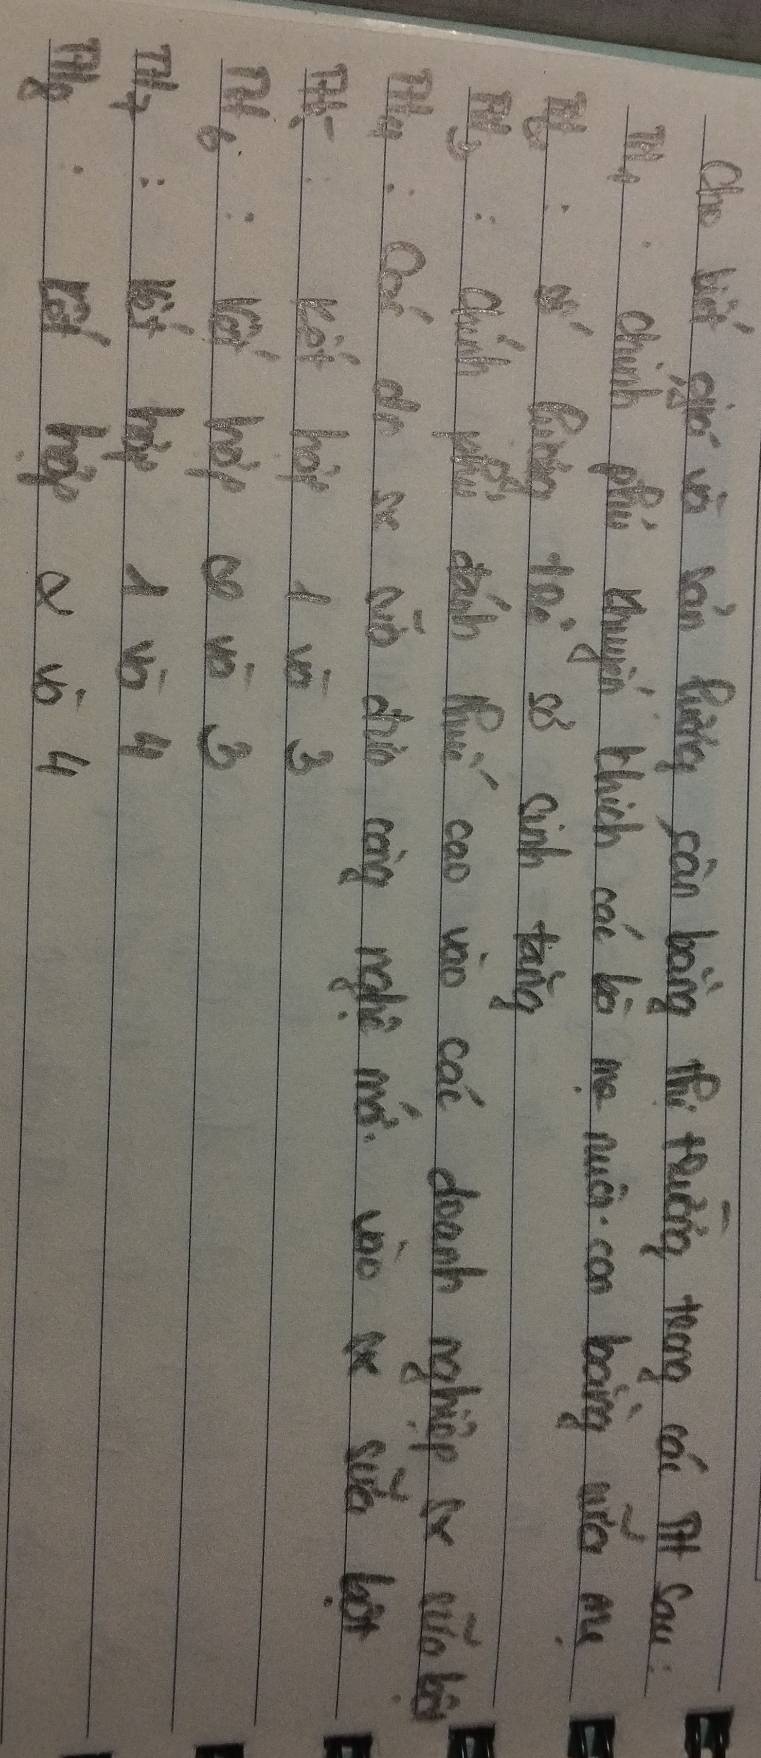 Cho biết giá và sản lượng cân bằng thị trường trong các TH sau:
TH1: chính phủ khuyến khích các bà mẹ nuôi con bằng sữa mẹ
TH2: số lượng trẻ sơ sinh tăng
TH3: chính phủ đánh thuế cao vào các doanh nghiệp sx sữa bột
TH4: Các dn sx sữa đưa công nghệ mới vào sx sữa bột
TH5: kết hợp 1 và 3
TH6: kết hợp 2 và 3
TH7: kết hợp 1 và 4
TH8: kết hợp 2 và 4